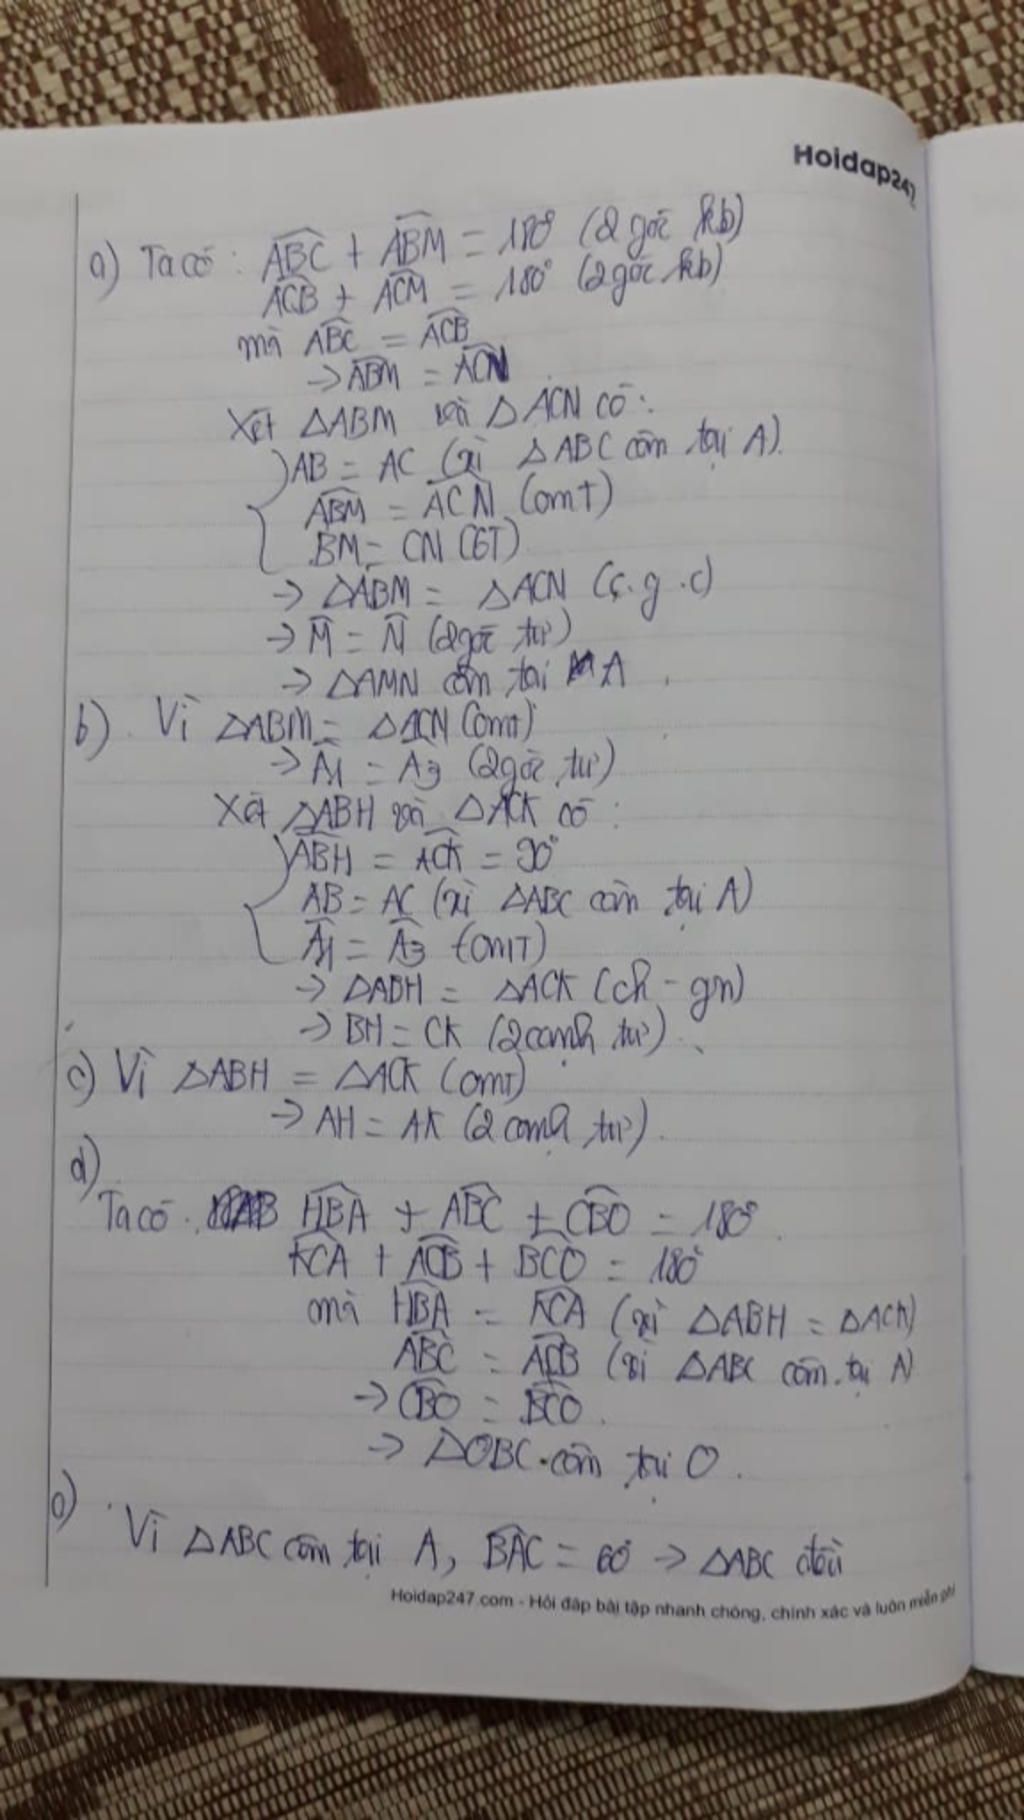 Hoidap247
a) Ta có: ABC + ABM = 180° (2 góc kb)
ACB + ACM = 180° (2 góc kb)
mà ABC = ACB
→ ABM = ACN
Xét △ABM và △ACN có:
AB = AC (vì △ABC cân tại A).
ABM = ACN (cmT)
BM = CN (GT)
→ △ABM = △ACN (c.g.c)
→ M = N (2 góc tư)
→ △AMN cân tại A.
b) Vì △ABM = △ACN (cmt)
→ A1 = A3 (2 góc tư)
Xét △ABH và △ACK có:
ABH = ACK = 90°
AB = AC (vì △ABC cân tại A)
A1 = A3 (cmT)
→ △ABH = △ACK (ch - gn)
→ BH = CK (2 cạnh tư).
c) Vì △ABH = △ACK (cmT)
→ AH = AK (2 cạnh tư).
d)
Ta có. HBA + ABC + CBO = 180°.
KCA + ACB + BCO = 180°
mà HBA = KCA (vì △ABH = △ACK)
ABC = ACB (vì △ABC cân tại A)
→ CBO = BCO.
→ △OBC cân tại O.
Vì △ABC cân tại A, BAC = 60° → △ABC đều
Hoidap247.com - Hỏi đáp bài tập nhanh chóng, chính xác và luôn miễn phí